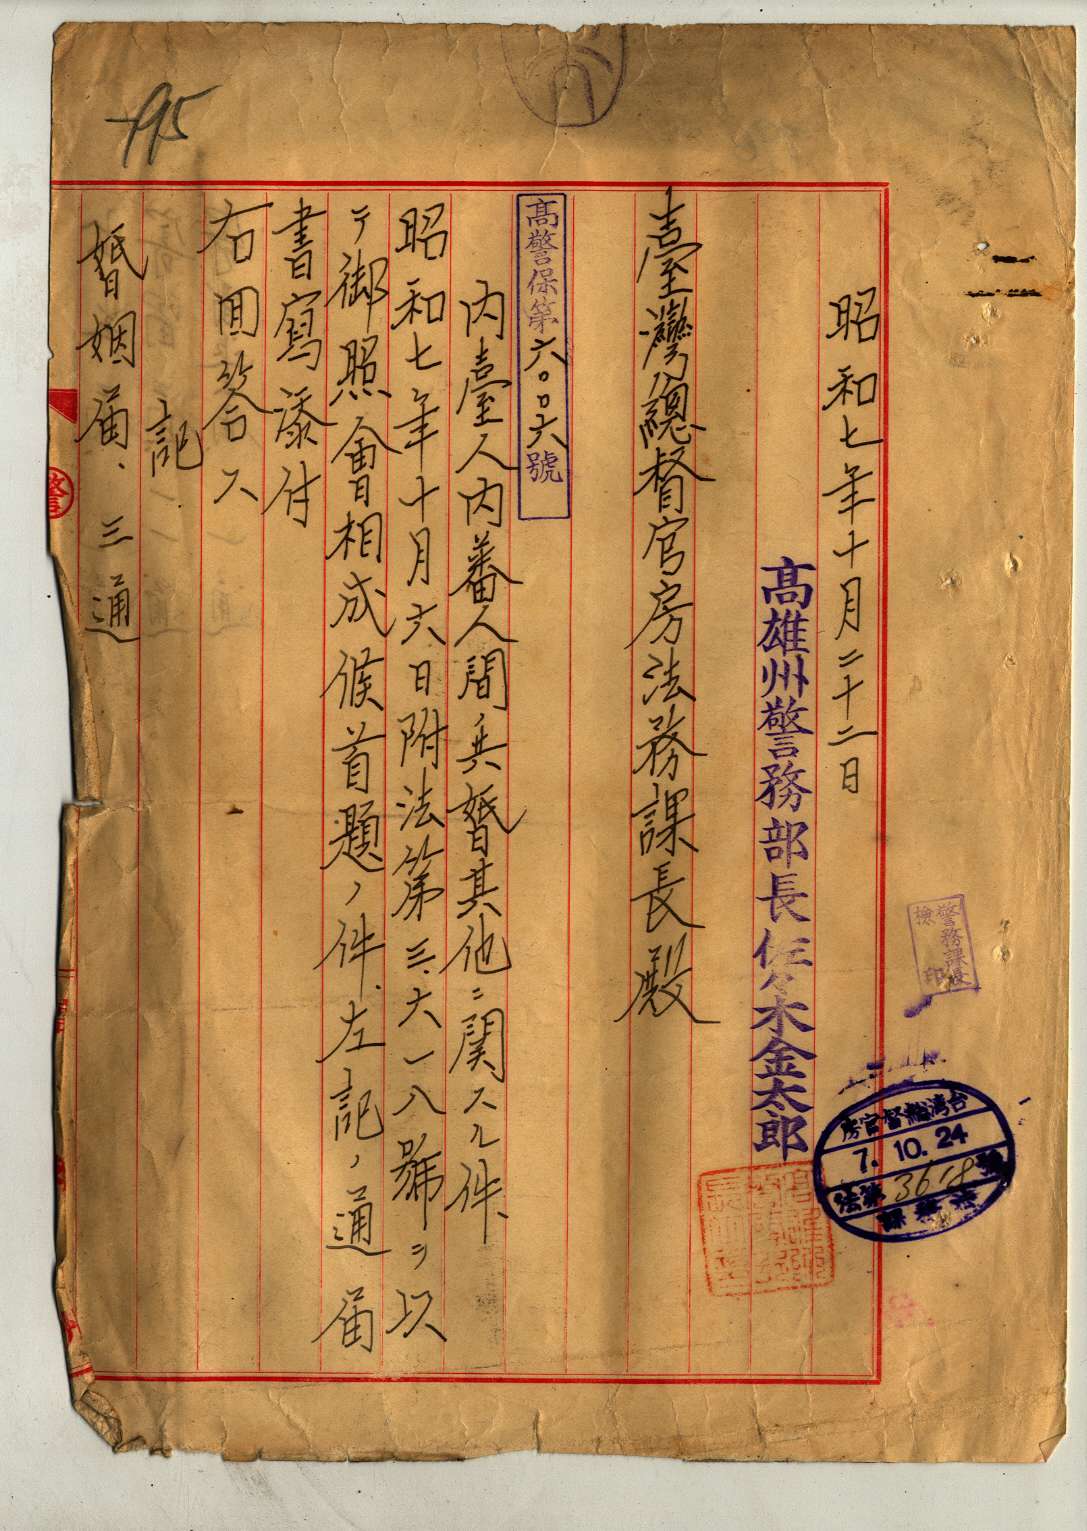 195
昭和七年十月二十二日
高雄州警務部長佐々木金太郎
臺灣總督官房法務課長殿
高警保第六〇〇六號
内臺人内蕃人間ノ共婚其他ニ関スル件、
昭和七年十月六日附法第三、六一八號ヲ以
テ御照會相成候首題ノ件、左記ノ通届
書寫添付
右回答ス
記
婚姻届、三通
警務課長
檢印
台湾総督官房
7.10.24
法第3618號
法務課